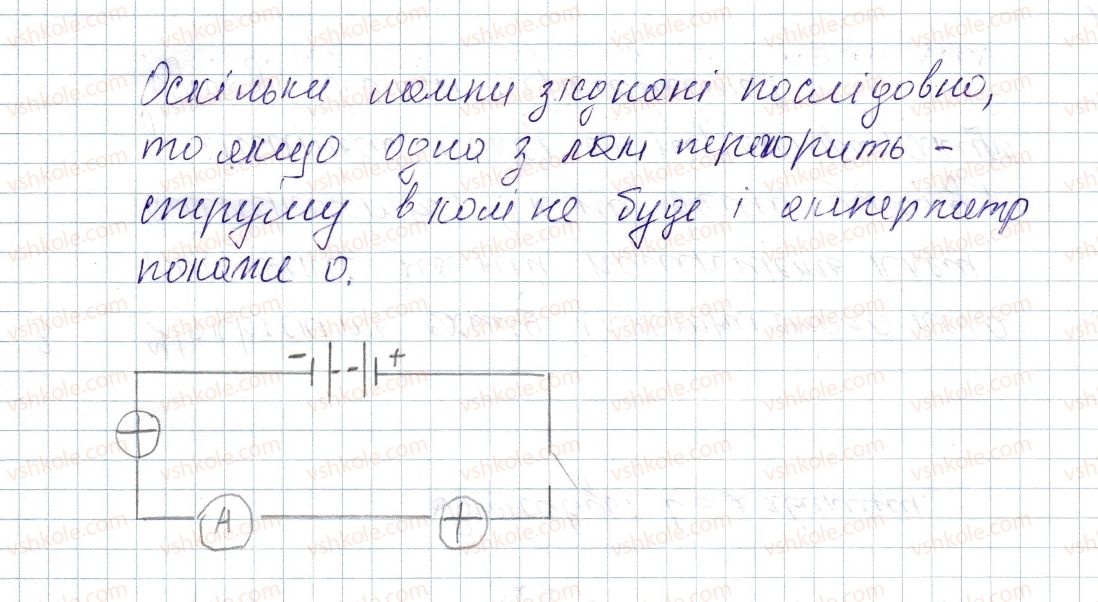 Оскільки лампи зієднані послідовно,
то якщо одна з лам перегорить –
струму в колі не буде і амперметр
покаже 0.
- +
A